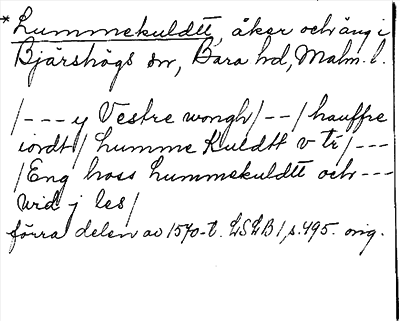 *Lummekuldtt, åker och äng i
Bjärshögs sn, Bara hd, Malm. l.
/--- y Vestre wongh/--/hauffre
iordt/Lumme Kuldtt v ti/---
/Eng hoss Lummekuldtt och---
wid j les/
förra delen av 1570-t. LSLB 1, s. 495. orig.